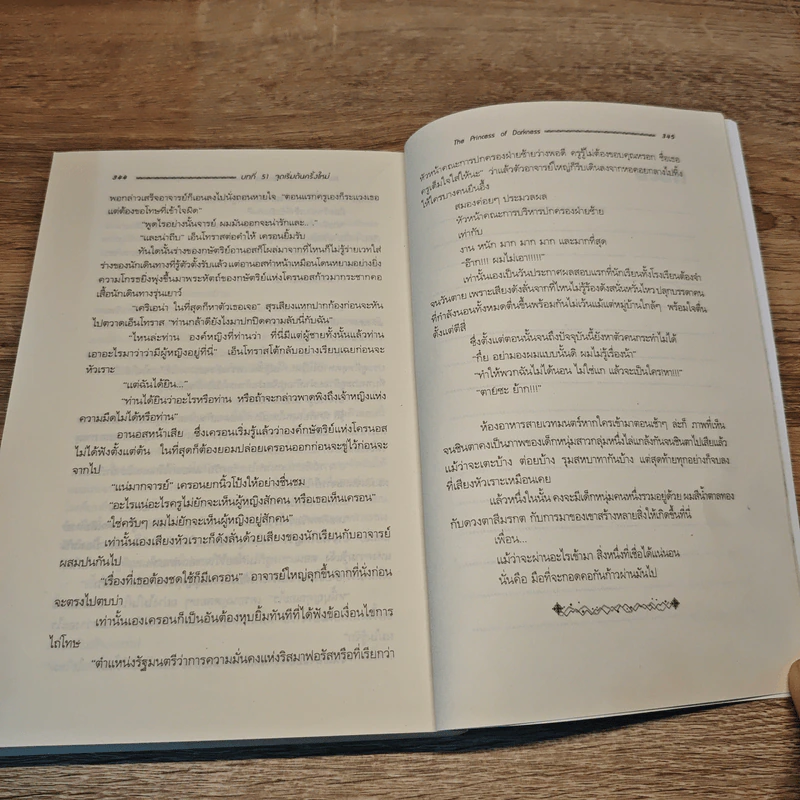 344 บทที่ 51 จุดเริ่มต้นครั้งใหม่
พอกล่าวเสร็จอาจารย์ก็เอนลงไปนั่งถอนหายใจ "ตอนแรกครูเองก็ระแวงเธอ
แต่ต้องขอโทษที่เข้าใจผิด"
"พูดไรอย่างนั้นจารย์ ผมมันออกจะน่ารักและ...."
"และน่าถีบ" เอ็นโทราสต่อคำให้ เครอนยิ้มรับ
ทันใดนั้นร่างของกษัตริย์อานอสก็โผล่มาจากที่ไหนก็ไม่รู้ร่ายเวทใส่
ร่างของนักเดินทางที่รู้ตัวตั้งรับแล้วแต่อานอสทำหน้าเหมือนโดนหยามอย่างยิ่ง
ความโกรธยิ่งพุ่งขึ้นมาพระหัตถ์ของกษัตริย์แห่งโครนอสก้าวมากระชากคอ
เสื้อนักเดินทางรุ่นเยาว์
"เคริเอน่า ในที่สุดก็หาตัวเธอเจอ" สุรเสียงแหกปากก้องก่อนจะหัน
ไปตวาดเอ็นโทราส "ท่านกล้าดียังไงมาปกปิดความลับนี่กับฉัน"
"ไหนล่ะท่าน องค์หญิงที่ท่านว่า ที่นี่มีแต่ผู้ชายทั้งนั้นแล้วท่าน
เอาอะไรมาว่าว่ามีผู้หญิงอยู่ที่นี่" เอ็นโทราสโต้กลับอย่างเรียบเฉยก่อนจะ
หัวเราะ
"แต่ฉันได้ยิน..."
"ท่านได้ยินว่าอะไรหรือท่าน หรือถ้าจะกล่าวพาดพิงถึงเจ้าหญิงแห่ง
ความมืดไม่ได้หรือท่าน"
อานอสหน้าเสีย ซึ่งเครอนเริ่มรู้แล้วว่าองค์กษัตริย์แห่งโครนอส
ไม่ได้ฟังตั้งแต่ต้น ในที่สุดก็ต้องยอมปล่อยเครอนออกก่อนจะขู่ไว้ก่อนจะ
จากไป
"แน่มากจารย์" เครอนยกนิ้วโป้งให้อย่างชื่นชม
"อะไรแน่อะไรครูไม่ยักจะเห็นผู้หญิงสักคน หรือเธอเห็นเครอน"
"ใช่ครับๆ ผมไม่ยักจะเห็นผู้หญิงอยู่สักคน"
เท่านั้นเองเสียงหัวเราะก็ดังลั่นด้วยเสียงของนักเรียนกับอาจารย์
ผสมปนกันไป
"เรื่องที่เธอต้องชดใช้ก็มีเครอน" อาจารย์ใหญ่ลุกขึ้นจากที่นั่งก่อน
จะตรงไปตบบ่า
เท่านั้นเองเครอนก็เป็นอันต้องหุบยิ้มทันทีที่ได้ฟังข้อเงื่อนไขการ
ไถ่โทษ
"ตำแหน่งรัฐมนตรีว่าการความมั่นคงแห่งริสมาฟอรัสหรือที่เรียกว่า
The Princess of Darkness 345
หัวหน้าคณะการปกครองฝ่ายซ้ายว่างพอดี ครูรู้ไม่ต้องขอบคุณหรอก ชื่อเธอ
ครูเติมใจใส่ให้นะ" ว่าแล้วตัวอาจารย์ใหญ่ก็รีบเดินลงจากหอคอยกลางไปทิ้ง
ให้ใครบางคนยืนอึ้ง
สมองค่อยๆ ประมวลผล
หัวหน้าคณะการบริหารปกครองฝ่ายซ้าย
เท่ากับ
งาน หนัก มาก มาก มาก และมากที่สุด
"อ๊าก!!! ผมไม่เอา!!!!"
เท่านั้นเองเป็นวันประกาศผลสอบแรกที่นักเรียนทั้งโรงเรียนต้องจำ
จนวันตาย เพราะเสียงดังลั่นจากที่ไหนไม่รู้ร้องดังสนั่นหวั่นไหวปลุกบรรดาคน
ที่กำลังนอนทั้งหมดตื่นขึ้นพร้อมกันไม่เว้นแม้แต่หมู่บ้านใกล้ๆ พร้อมใจตื่น
ตั้งแต่ตีสี่
ซึ่งตั้งแต่ตอนนั้นจนถึงปัจจุบันนี้ยังหาตัวคนกระทำไม่ได้
"กี่ย อย่ามองผมแบบนั้นดิ ผมไม่รู้เรื่องน้า"
"ทำให้พวกฉันไม่ได้นอน ไม่ใช่แก แล้วจะเป็นใครหา!!!"
"ตายซะ ย้าก!!!"
ห้องอาหารสายเวทมนตร์หากใครเข้ามาตอนเช้าๆ ล่ะก็ ภาพที่เห็น
จนชินตาคงเป็นภาพของเด็กหนุ่มสาวกลุ่มหนึ่งไล่แกล้งกันจนชินตาไปเสียแล้ว
แม้ว่าจะเตะบ้าง ต่อยบ้าง รุมสหบาทากันบ้าง แต่สุดท้ายทุกอย่างก็จบลง
ที่เสียงหัวเราะเหมือนเคย
แล้วหนึ่งในนั้น คงจะมีเด็กหนุ่มคนหนึ่งรวมอยู่ด้วย ผมสีน้ำตาลทอง
กับดวงตาสีมรกต กับการมาของเขาสร้างหลายสิ่งให้เกิดขึ้นที่นี่
เพื่อน...
แม้ว่าจะผ่านอะไรเข้ามา สิ่งหนึ่งที่เชื่อได้แน่นอน
นั่นคือ มือที่จะกอดคอกันก้าวผ่านมันไป